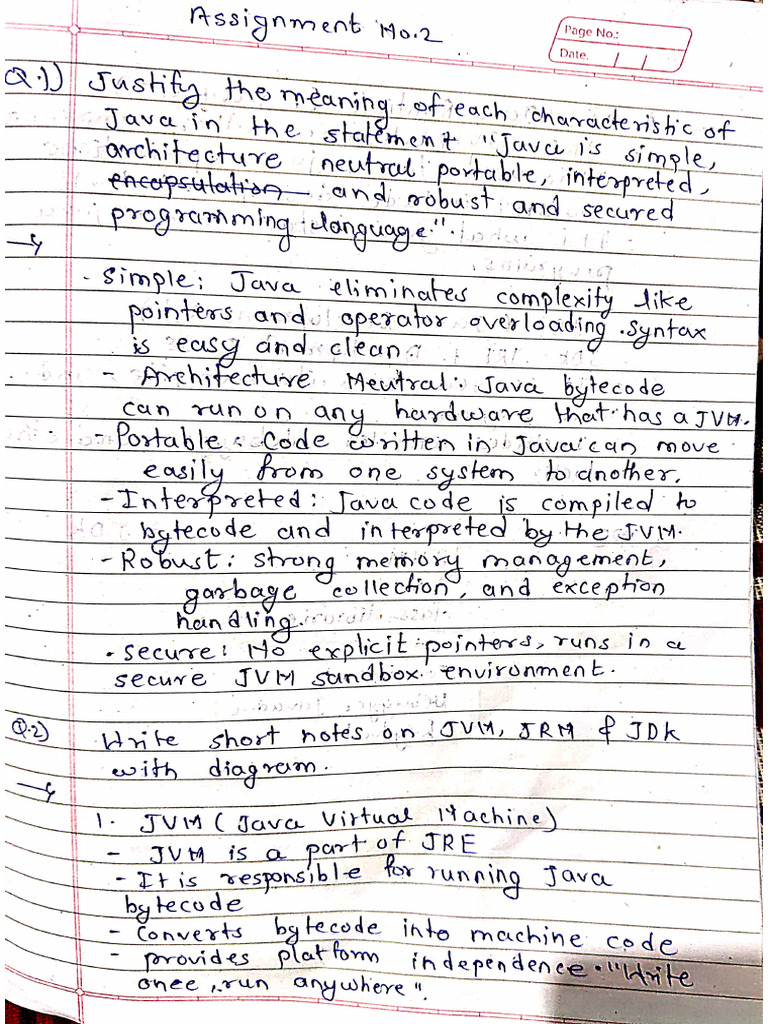 Assignment No.2
Page No.:
Date. / /
Q.1) Justify the meaning of each characteristic of
Java in the statement "Java is simple,
architecture neutral portable, interpreted,
encapsulation and robust and secured
programming language".
- Simple: Java eliminates complexity like
pointers and operator overloading. Syntax
is easy and clean
- Architecture Neutral: Java bytecode
can run on any hardware that has a JVM.
- Portable: Code written in Java can move
easily from one system to another.
- Interpreted: Java code is compiled to
bytecode and interpreted by the JVM.
- Robust: Strong memory management,
garbage collection, and exception
handling.
• Secure: No explicit pointers, runs in a
secure JVM sandbox environment.
Q.2) Write short notes on JVM, JRM & JDK
with diagram.
1. JVM (Java Virtual Machine)
- JVM is a part of JRE
- It is responsible for running Java
bytecode
- Converts bytecode into machine code
- provides platform independence. "Write
once, run anywhere".